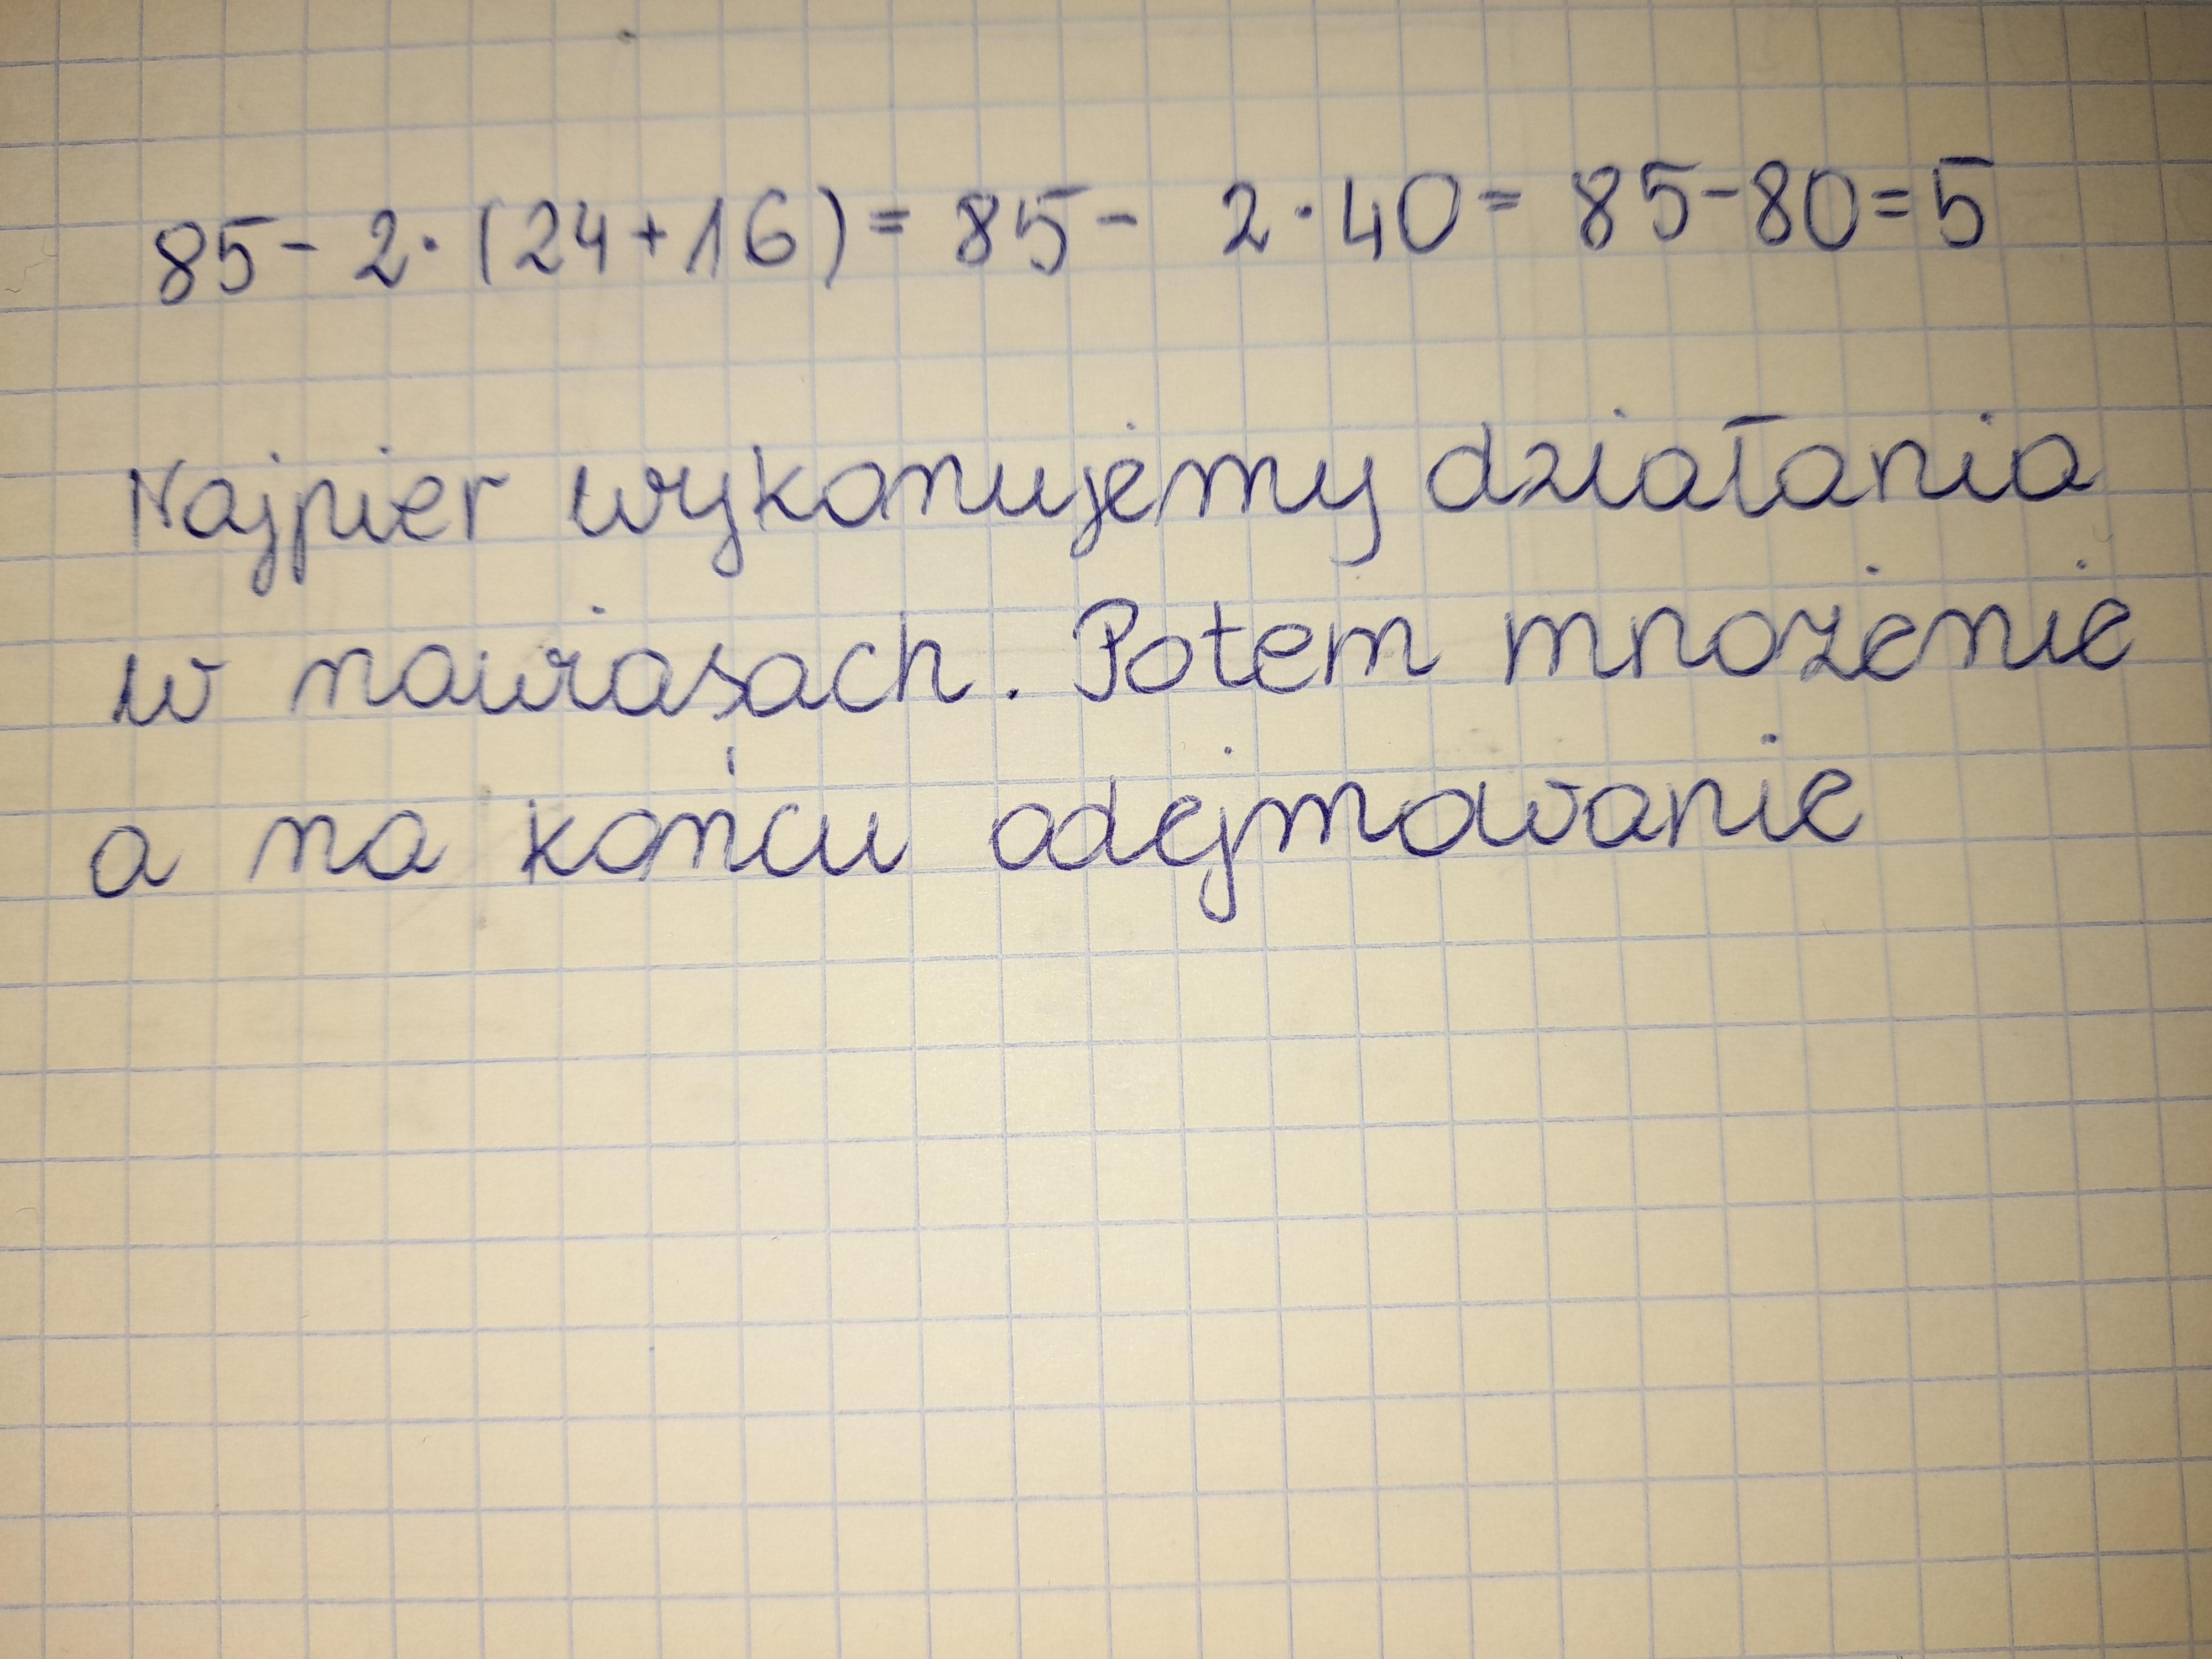 85 - 2 · (24 + 16) = 85 - 2 · 40 = 85 - 80 = 5
Najpier wykonujemy działania
w nawiasach. Potem mnożenie
a na końcu odejmowanie